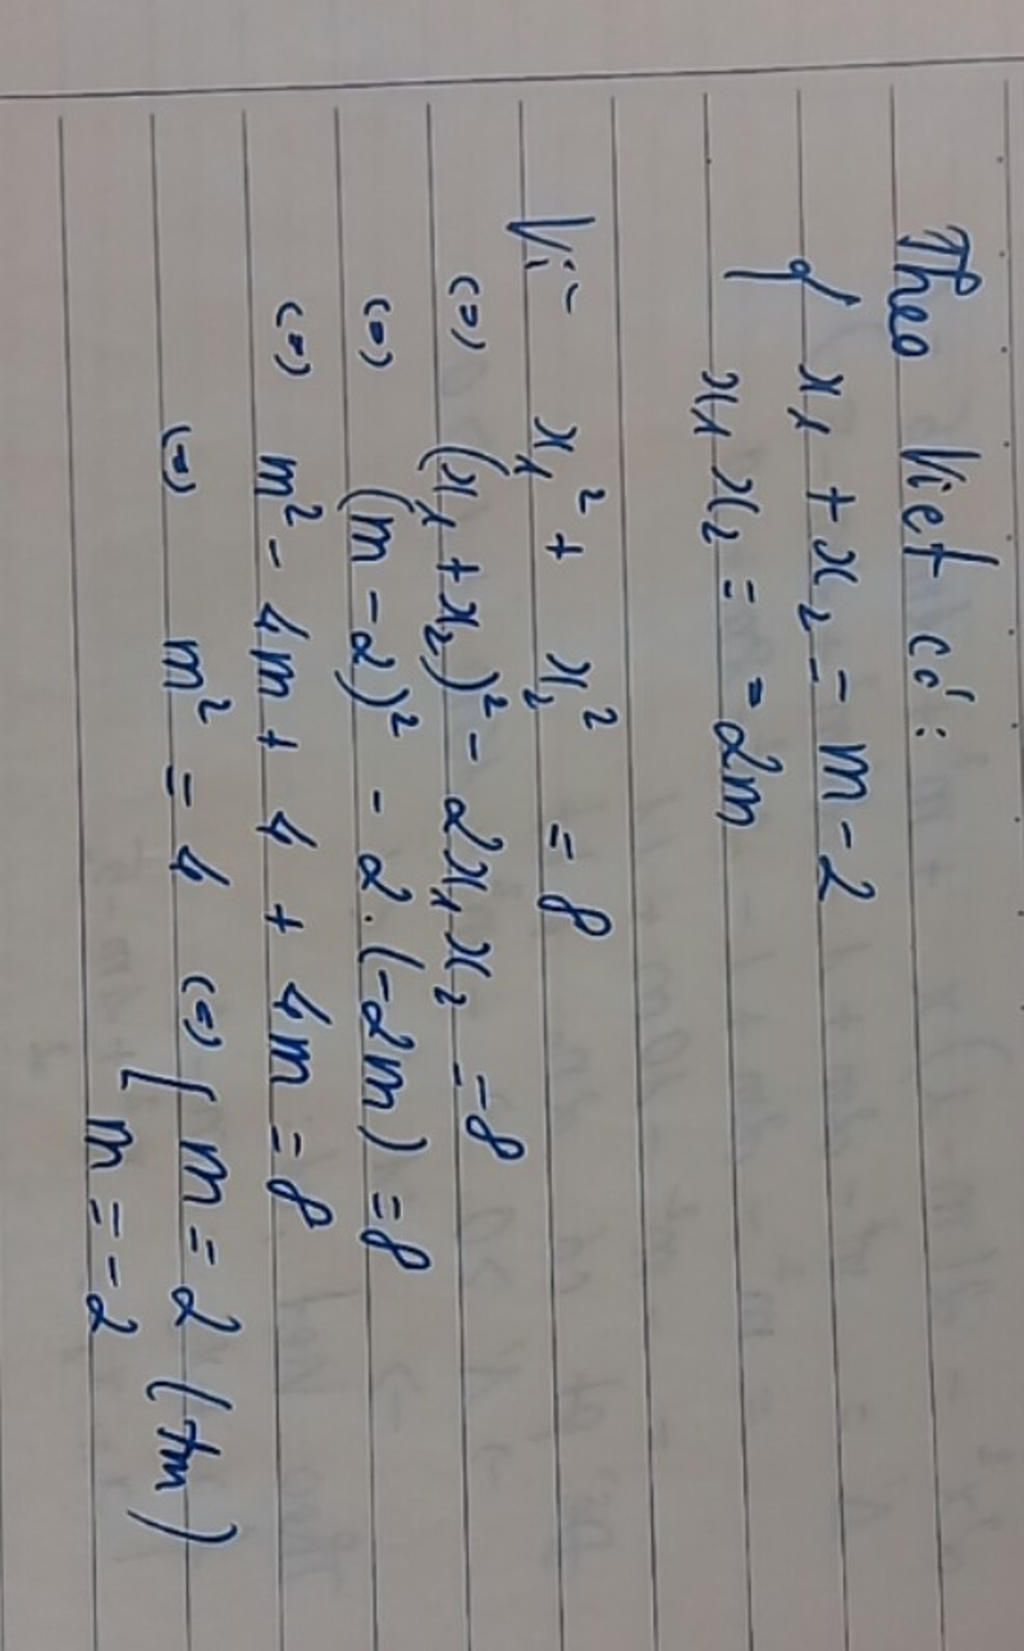 Theo Viet có:
{ x₁ + x₂ = m - 2
x₁ x₂ = -2m
Vì x₁² + x₂² = 8
(=) (x₁ + x₂)² - 2x₁x₂ = 8
(=) (m - 2)² - 2.(-2m) = 8
(=) m² - 4m + 4 + 4m = 8
(=) m² = 4 (=) [ m = 2 (tm)
m = -2